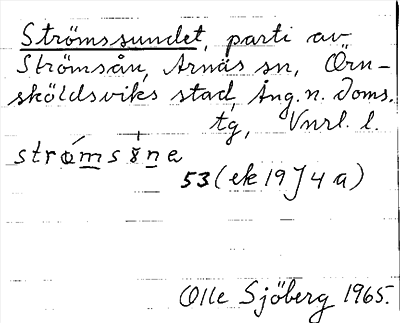 Strömssundet, parti av
Strömsån, Arnäs sn, Örn-
sköldsviks stad, Ång. n. doms.
tg, Vnrl. l.
53 (ek 19 J 4 a)
Olle Sjöberg 1965.